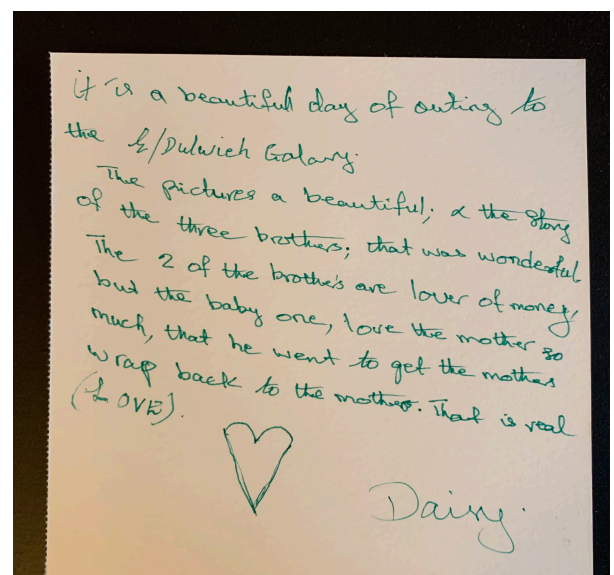 it is a beautiful day of outing to
the E/Dulwich Galary.
The pictures a beautiful; & the story
of the three brothers; that was wonderful
The 2 of the brothers are lover of money,
but the baby one, love the mother so
much, that he went to get the mothers
wrap back to the mothers. That is real
(LOVE).
Daisy.